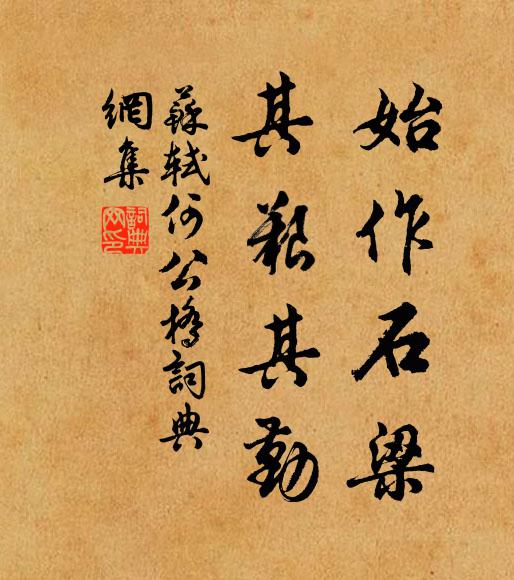 始作石梁
其艱其勤
蘇軾何公橋詞典
網集
詞典網印